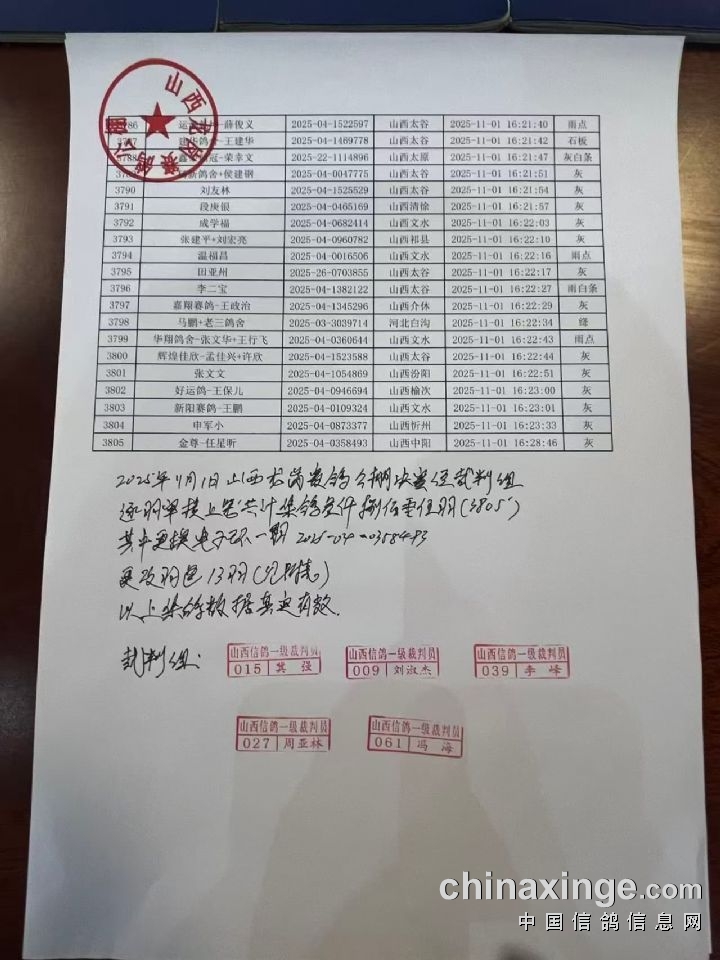 山西
3786 薛俊义 2025-04-1522597 山西太谷 2025-11-01 16:21:40 雨点
鸽舍-王建华 2025-04-1469778 山西太谷 2025-11-01 16:21:42 石板
3788 冠-荣幸文 2025-22-1114896 山西太原 2025-11-01 16:21:47 灰白条
新鸽舍+侯建钢 2025-04-0047775 山西太谷 2025-11-01 16:21:51 灰
3790 刘友林 2025-04-1525529 山西太谷 2025-11-01 16:21:54 灰
3791 段庚银 2025-04-0465169 山西清徐 2025-11-01 16:21:57 灰
3792 成学福 2025-04-0682414 山西文水 2025-11-01 16:22:03 灰
3793 张建平+刘宏亮 2025-04-0960782 山西祁县 2025-11-01 16:22:10 灰
3794 温福昌 2025-04-0016506 山西文水 2025-11-01 16:22:16 雨点
3795 田亚州 2025-26-0703855 山西太谷 2025-11-01 16:22:17 灰
3796 李二宝 2025-04-1382122 山西太谷 2025-11-01 16:22:27 雨白条
3797 嘉翔赛鸽-王政治 2025-04-1345296 山西介休 2025-11-01 16:22:29 灰
3798 马鹏+老三鸽舍 2025-03-3039714 河北白沟 2025-11-01 16:22:34 绛
3799 华翔鸽舍-张文华+王行飞 2025-04-0360644 山西文水 2025-11-01 16:22:43 雨点
3800 辉煌佳欣-孟佳兴+许欣 2025-04-1523588 山西太谷 2025-11-01 16:22:44 灰
3801 张文文 2025-04-1054869 山西汾阳 2025-11-01 16:22:51 灰
3802 好运鸽-王保儿 2025-04-0946694 山西榆次 2025-11-01 16:23:00 灰
3803 新阳赛鸽-王鹏 2025-04-0109324 山西文水 2025-11-01 16:23:01 灰
3804 申军小 2025-04-0873377 山西忻州 2025-11-01 16:23:33 灰
3805 金尊-任星昕 2025-04-0358493 山西中阳 2025-11-01 16:28:46 灰
2025年11月1日山西龙尚赛鸽公棚决赛经裁判组
逐羽审核上笼共计集鸽叁仟捌佰零伍羽(3805)
其中更换电子环一羽 2025-04-0358493
更改羽色13羽(见附表)
以上集鸽数据真实有效.
裁判组:
山西信鸽一级裁判员
015 冀强
山西信鸽一级裁判员
009 刘淑杰
山西信鸽一级裁判员
039 李峰
山西信鸽一级裁判员
027 周亚林
山西信鸽一级裁判员
061 冯海
chinaxinge.com
中国信鸽信息网